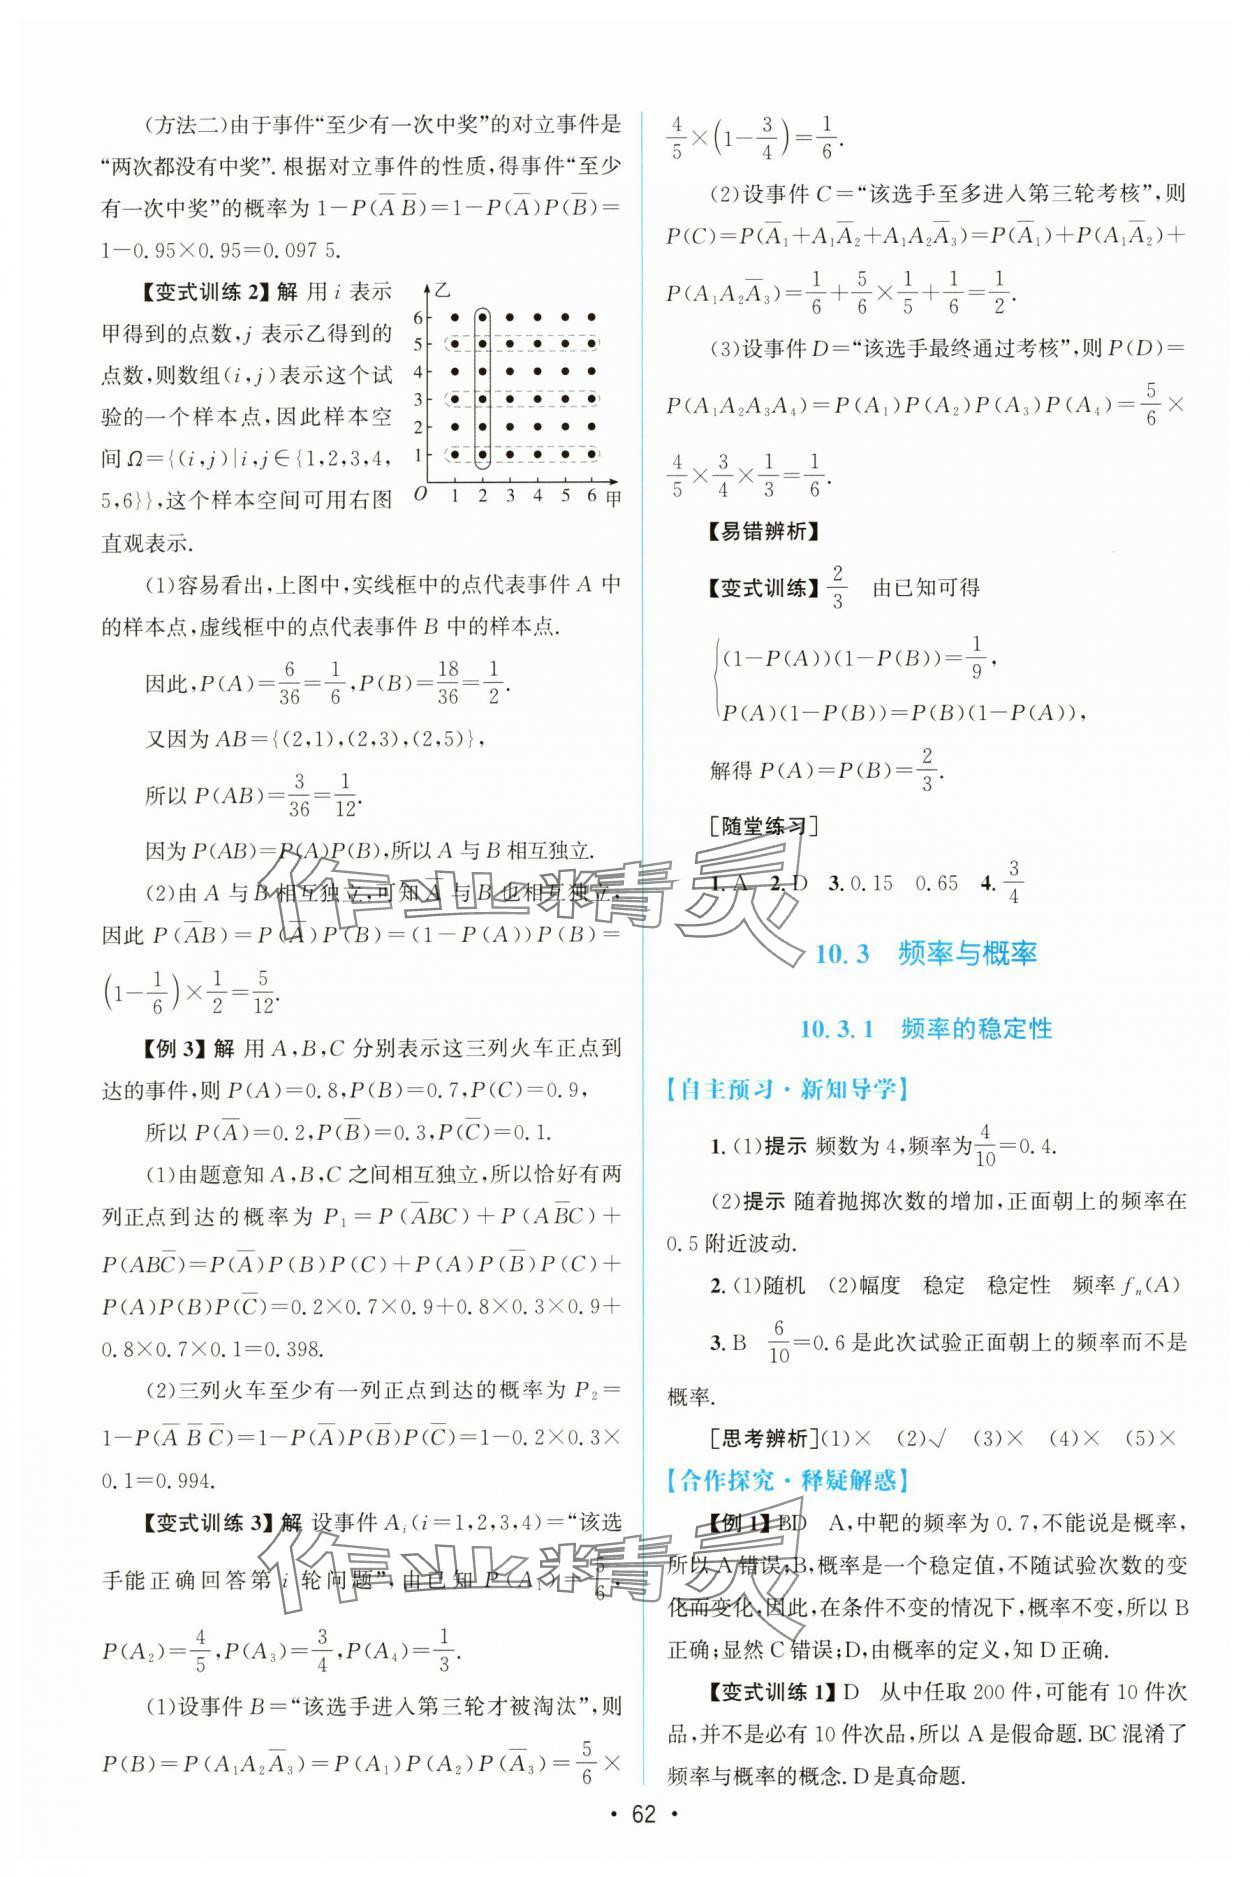 (方法二)由于事件“至少有一次中奖”的对立事件是
“两次都没有中奖”.根据对立事件的性质,得事件“至少
有一次中奖”的概率为 1-P(A̅ B̅)=1-P(A̅)P(B̅)=
1-0.95×0.95=0.097 5.
【变式训练2】解 用 i 表示
甲得到的点数,j 表示乙得到的
点数,则数组(i,j)表示这个试
验的一个样本点,因此样本空
间 Ω={(i,j)|i,j∈{1,2,3,4,
5,6}},这个样本空间可用右图
直观表示.
乙
6
5
4
3
2
1
O 1 2 3 4 5 6 甲
(1)容易看出,上图中,实线框中的点代表事件 A 中
的样本点,虚线框中的点代表事件 B 中的样本点.
因此,P(A)=6/36=1/6,P(B)=18/36=1/2.
又因为 AB={(2,1),(2,3),(2,5)},
所以 P(AB)=3/36=1/12.
因为 P(AB)=P(A)P(B),所以 A 与 B 相互独立.
(2)由 A 与 B 相互独立,可知 A̅ 与 B 也相互独立,
因此 P(A̅B)=P(A̅)P(B)=(1-P(A))P(B)=
(1-1/6)×1/2=5/12.
【例3】解 用 A,B,C 分别表示这三列火车正点到
达的事件,则 P(A)=0.8,P(B)=0.7,P(C)=0.9,
所以 P(A̅)=0.2,P(B̅)=0.3,P(C̅)=0.1.
(1)由题意知 A,B,C 之间相互独立,所以恰好有两
列正点到达的概率为 P₁=P(A̅BC)+P(AB̅C)+
P(ABC̅)=P(A̅)P(B)P(C)+P(A)P(B̅)P(C)+
P(A)P(B)P(C̅)=0.2×0.7×0.9+0.8×0.3×0.9+
0.8×0.7×0.1=0.398.
(2)三列火车至少有一列正点到达的概率为 P₂=
1-P(A̅ B̅ C̅)=1-P(A̅)P(B̅)P(C̅)=1-0.2×0.3×
0.1=0.994.
【变式训练3】解 设事件 Aᵢ(i=1,2,3,4)=“该选
手能正确回答第 i 轮问题”,由已知 P(A₁)=5/6,
P(A₂)=4/5,P(A₃)=3/4,P(A₄)=1/3.
(1)设事件 B=“该选手进入第三轮才被淘汰”,则
P(B)=P(A₁A₂A̅₃)=P(A₁)P(A₂)P(A̅₃)=5/6×
4/5×(1-3/4)=1/6.
(2)设事件 C=“该选手至多进入第三轮考核”,则
P(C)=P(A̅₁+A₁A̅₂+A₁A₂A̅₃)=P(A̅₁)+P(A₁A̅₂)+
P(A₁A₂A̅₃)=1/6+5/6×1/5+1/6=1/2.
(3)设事件 D=“该选手最终通过考核”,则 P(D)=
P(A₁A₂A₃A₄)=P(A₁)P(A₂)P(A₃)P(A₄)=5/6×
4/5×3/4×1/3=1/6.
【易错辨析】
【变式训练】2/3 由已知可得
(1-P(A))(1-P(B))=1/9,
P(A)(1-P(B))=P(B)(1-P(A)),
解得 P(A)=P(B)=2/3.
[随堂练习]
1.A 2.D 3.0.15 0.65 4.3/4
10.3 频率与概率
10.3.1 频率的稳定性
【自主预习·新知导学】
1.(1)提示 频数为4,频率为4/10=0.4.
(2)提示 随着抛掷次数的增加,正面朝上的频率在
0.5附近波动.
2.(1)随机 (2)幅度 稳定 稳定性 频率 fₙ(A)
3.B 6/10=0.6是此次试验正面朝上的频率而不是
概率.
[思考辨析](1)× (2)√ (3)× (4)× (5)×
【合作探究·释疑解惑】
【例1】BD A,中靶的频率为0.7,不能说是概率,
所以A错误;B,概率是一个稳定值,不随试验次数的变
化而变化,因此,在条件不变的情况下,概率不变,所以B
正确;显然C错误;D,由概率的定义,知D正确.
【变式训练1】D 从中任取200件,可能有10件次
品,并不是必有10件次品,所以A是假命题.BC混淆了
频率与概率的概念.D是真命题.
·62·
作业精灵
作业精灵